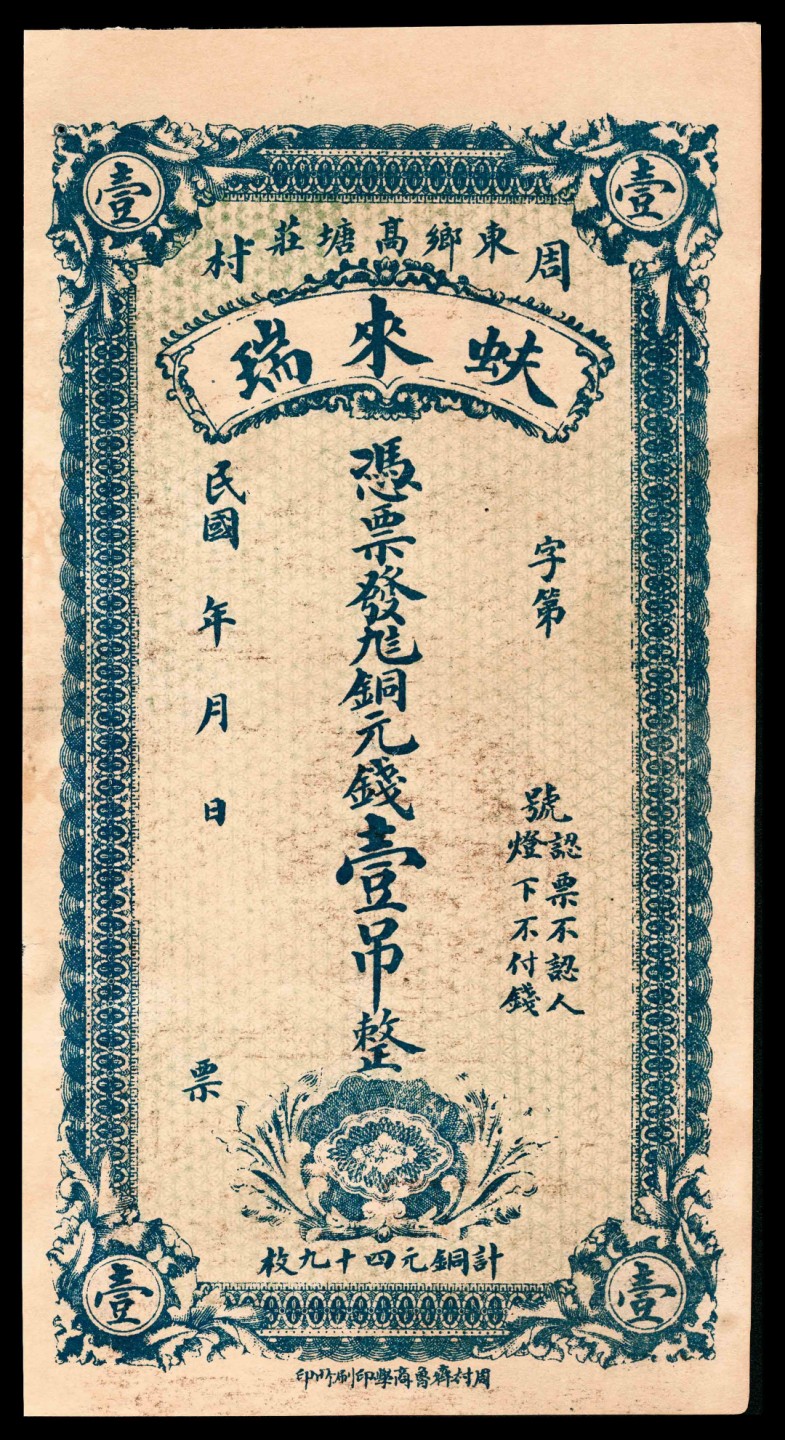 壹 壹
周東鄉高塘莊村
蚨來瑞
字第 號
認票不認人
燈下不付錢
憑票發 銅元錢壹吊整
民國 年 月 日 票
計銅元四十九枚
壹 壹
周村齊魯商學印刷所印